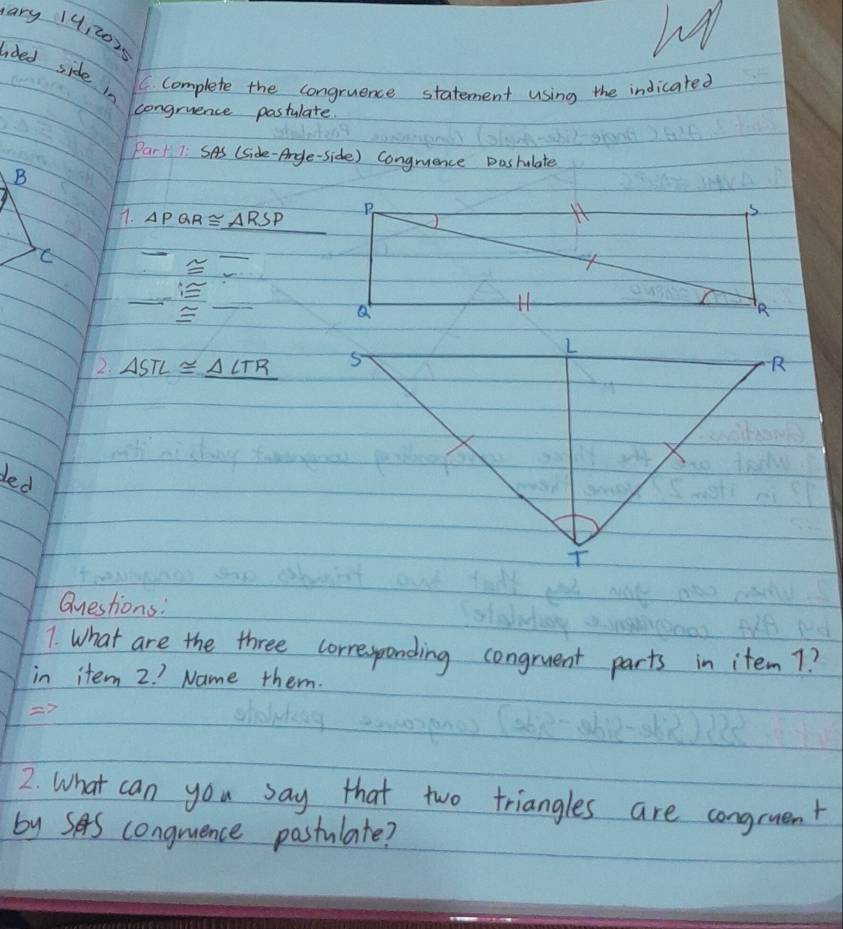 uary 14, 2025
uded side in
B
C
ded
C. Complete the congruence statement using the indicated
congruence postulate.
Part 1: SAS (Side-Angle-Side) Congruence Postulate
1. ΔPQR ≅ ΔRSP
≅
≅
≅
P
S
Q
R
2. ΔSTL ≅ ΔLTR
S
L
R
T
Questions:
1. What are the three corresponding congruent parts in item 1?
in item 2? Name them.
=>
2. What can you say that two triangles are congruent
by SAS congruence postulate?